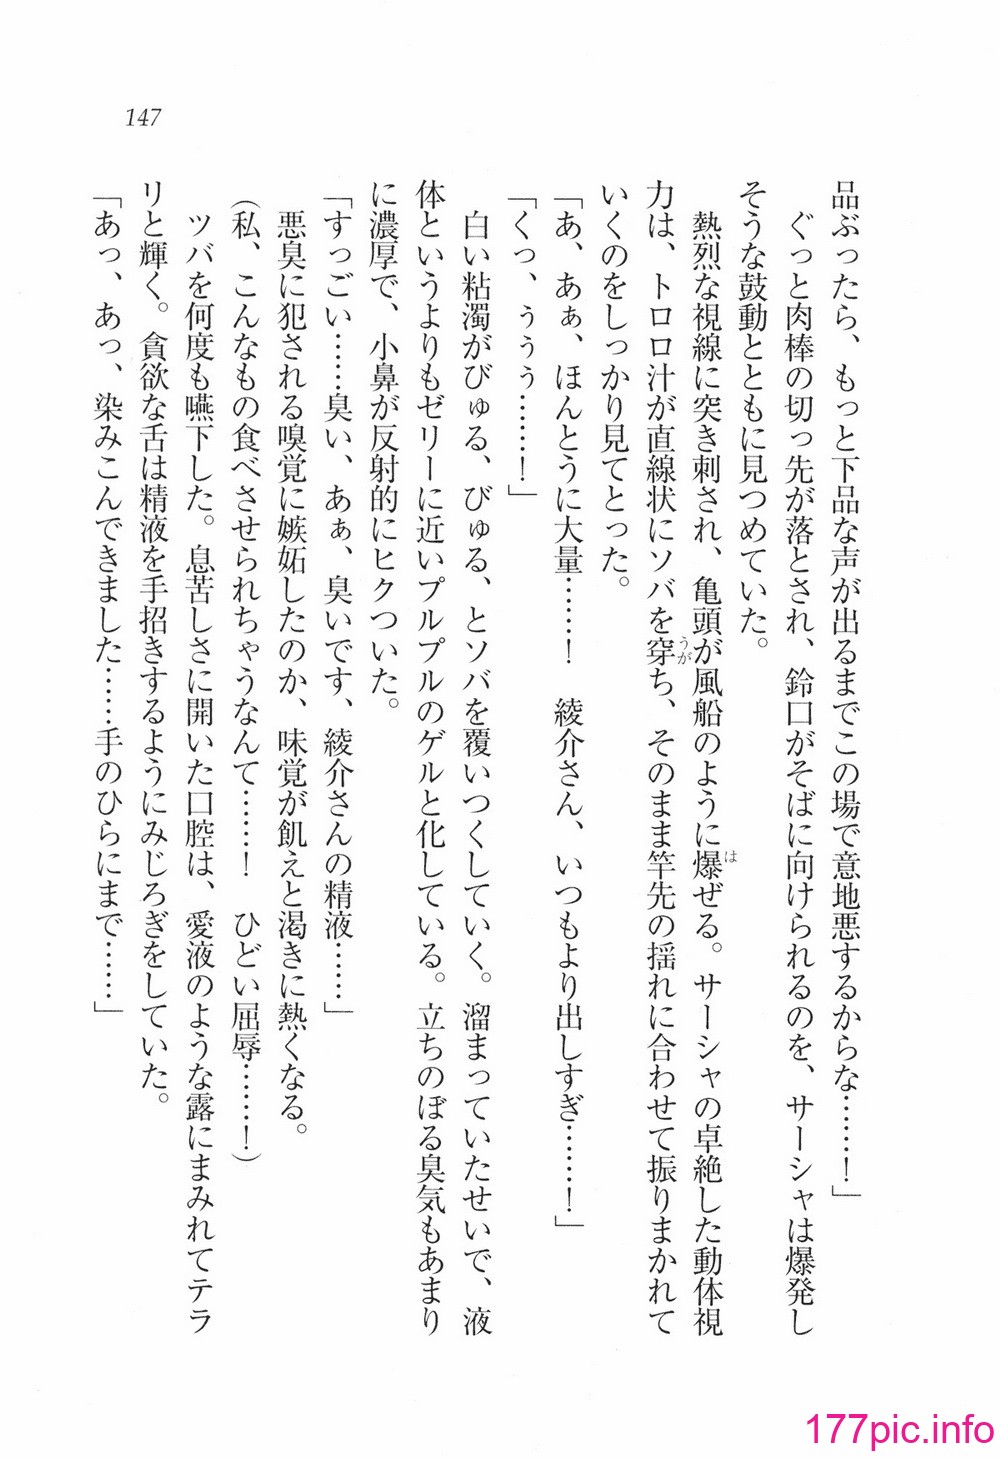 147
品ぶったら、もっと下品な声が出るまでこの場で意地悪するからな……！」
ぐっと肉棒の切っ先が落とされ、鈴口がそばに向けられるのを、サーシャは爆発し
そうな鼓動とともに見つめていた。
熱烈な視線に突き刺され、亀頭が風船のように爆ぜる。サーシャの卓絶した動体視
は
力は、トロロ汁が直線状にソバを穿ち、そのまま竿先の揺れに合わせて振りまかれて
うが
いくのをしっかり見てとった。
「あ、あぁ、ほんとうに大量……！　綾介さん、いつもより出しすぎ……！」
「くっ、ぅぅぅ……！」
白い粘濁がびゅる、びゅる、とソバを覆いつくしていく。溜まっていたせいで、液
体というよりもゼリーに近いプルプルのゲルと化している。立ちのぼる臭気もあまり
に濃厚で、小鼻が反射的にヒクついた。
「すっごい……臭い、あぁ、臭いです、綾介さんの精液……」
悪臭に犯される嗅覚に嫉妬したのか、味覚が飢えと渇きに熱くなる。
（私、こんなもの食べさせられちゃうなんて……！　ひどい屈辱……！）
ツバを何度も嚥下した。息苦しさに開いた口腔は、愛液のような露にまみれてテラ
リと輝く。貪欲な舌は精液を手招きするようにみじろぎをしていた。
「あっ、あっ、染みこんできました……手のひらにまで……」
177pic.info